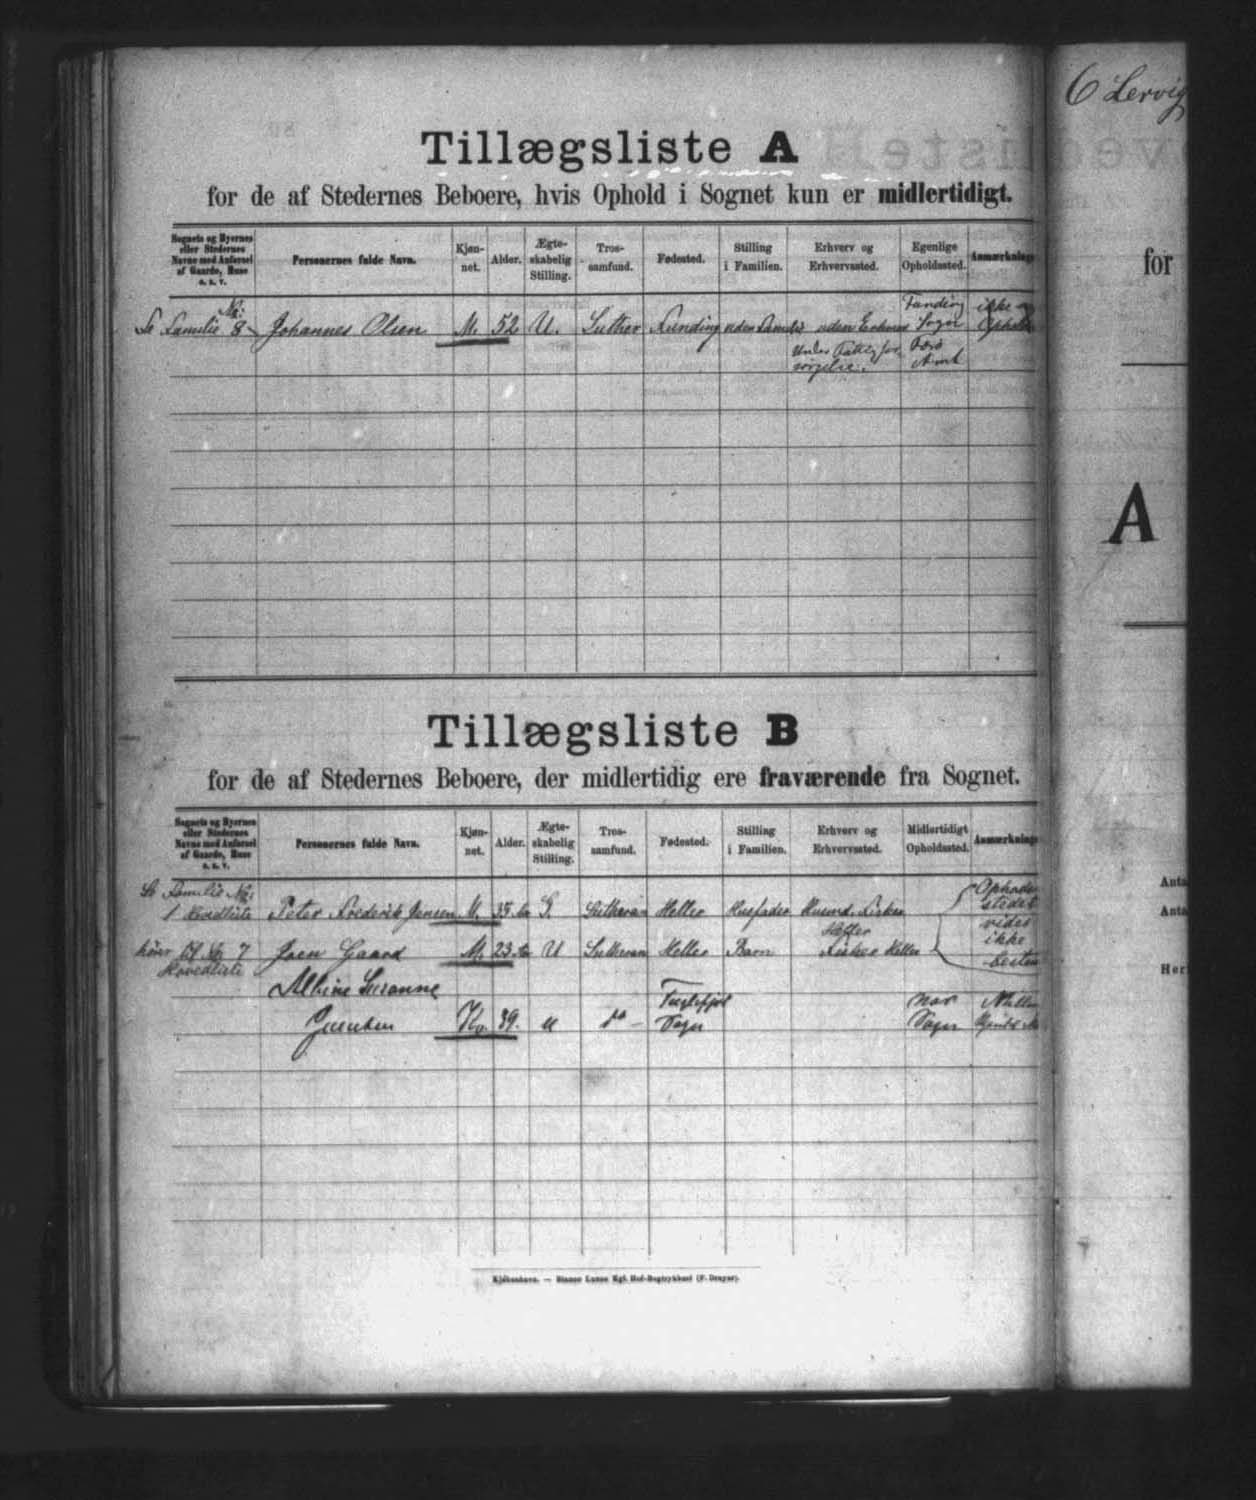 6 Lervig
Tillægsliste A
for de af Stedernes Beboere, hvis Ophold i Sognet kun er midlertidigt.
Sognets og Byernes eller Stedernes Navne med Anførsel af Gaarde, Huse o. s. v.
Personernes fulde Navn.
Kjøn-net.
Alder.
Ægte-skabelig Stilling.
Tros-samfund.
Fødested.
Stilling i Familien.
Erhverv og Erhvervssted.
Egenlige Opholdssted.
Anmærkninge
Se Familie No: 8
Johannes Olsen M. 52 U. Luther Funding uden Familie uden Erhverv
Under Fattigfor
sørgelse.
Funding
Sogn
Færø
Amt
ikke
Tillægsliste B
for de af Stedernes Beboere, der midlertidig ere fraværende fra Sognet.
Sognets og Byernes eller Stedernes Navne med Anførsel af Gaarde, Huse o. s. v.
Personernes fulde Navn.
Kjøn-net.
Alder.
Ægte-skabelig Stilling.
Tros-samfund.
Fødested.
Stilling i Familien.
Erhverv og Erhvervssted.
Midlertidigt Opholdssted.
Anmærkninge
Se Familie No:
1 Hovedliste Peter Frederik Jensen M. 35 G. Lutheran Heller Husfader Husmd. Fisker
Heller
hører til No 7
Hovedliste
Joen Gaard M. 23 U Lutheran Heller Barn Fisker Heller
Opholds
stedet
vides
ikke
bestem
Albine Susanne
Kv. 39. u do - Fuglefjord
Sogn
Sogn
Kjøbenhavn. — Bianco Lunos Kgl. Hof-Bogtrykkeri (F. Dreyer).
for
A
Anta
Anta
Her